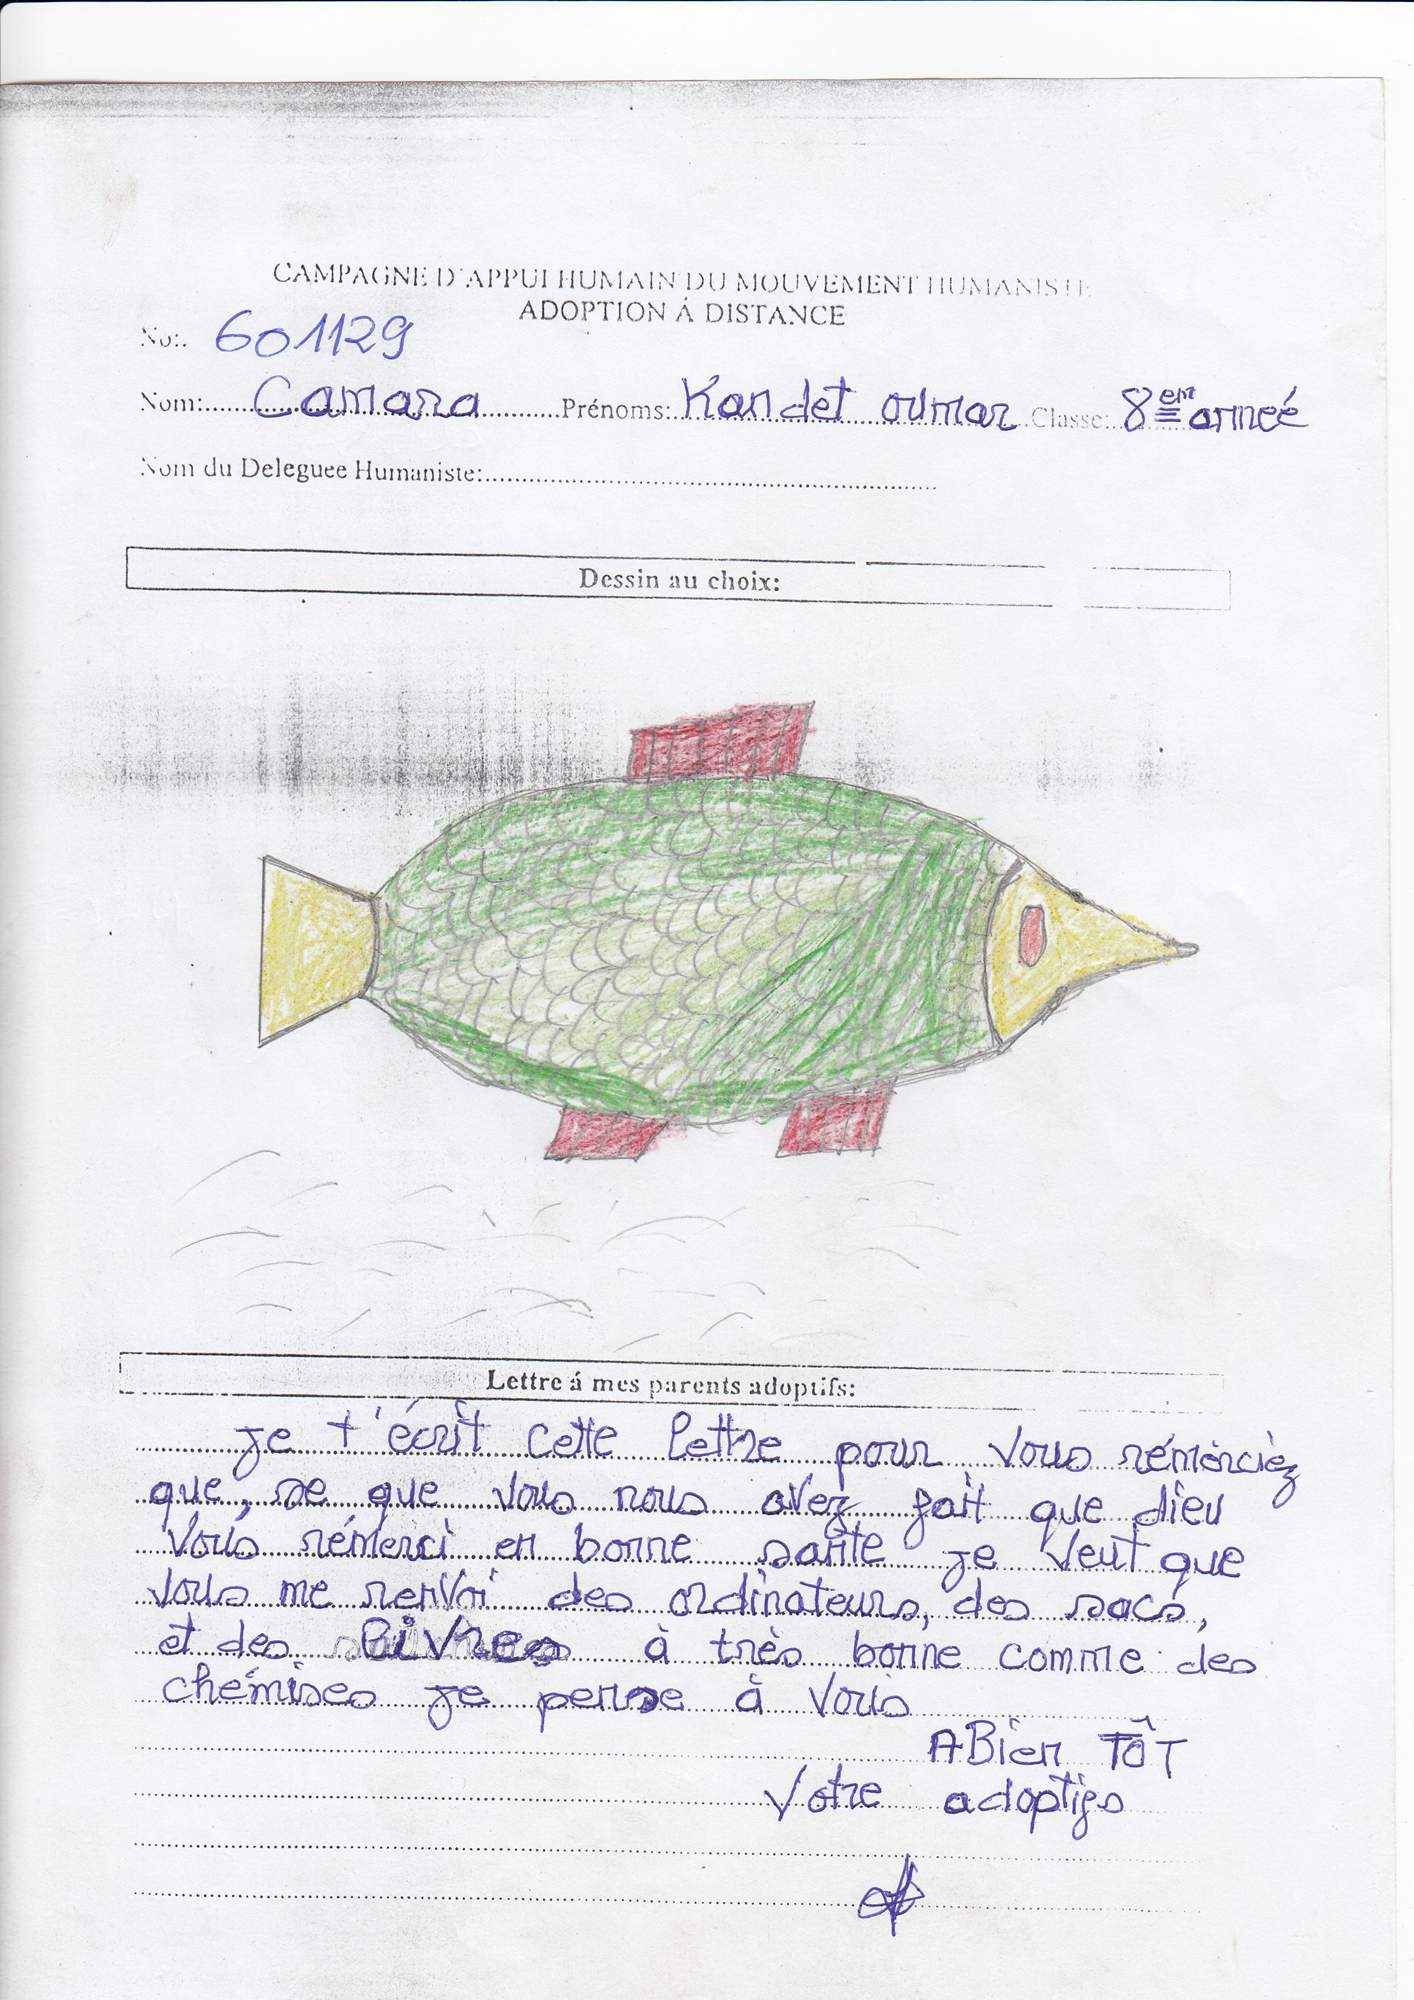 CAMPAGNE D'APPUI HUMAIN DU MOUVEMENT HUMANISTE
ADOPTION Á DISTANCE
No: 601129
Nom: Camara Prénoms: Kandet oumar Classe: 8em anneé
Nom du Deleguee Humaniste:
Dessin au choix:
Lettre á mes parents adoptifs:
Je t'écrit cette lettre pour vous rémérciéz
que, se que vous nous avez fait que dieu
vous rémerci en bonne sante je veut que
vous me renvoi des ordinateurs, des sacs,
et des livres à très bonne comme des
chémises je pense à vous
A Bien TôT
Votre adoptifs